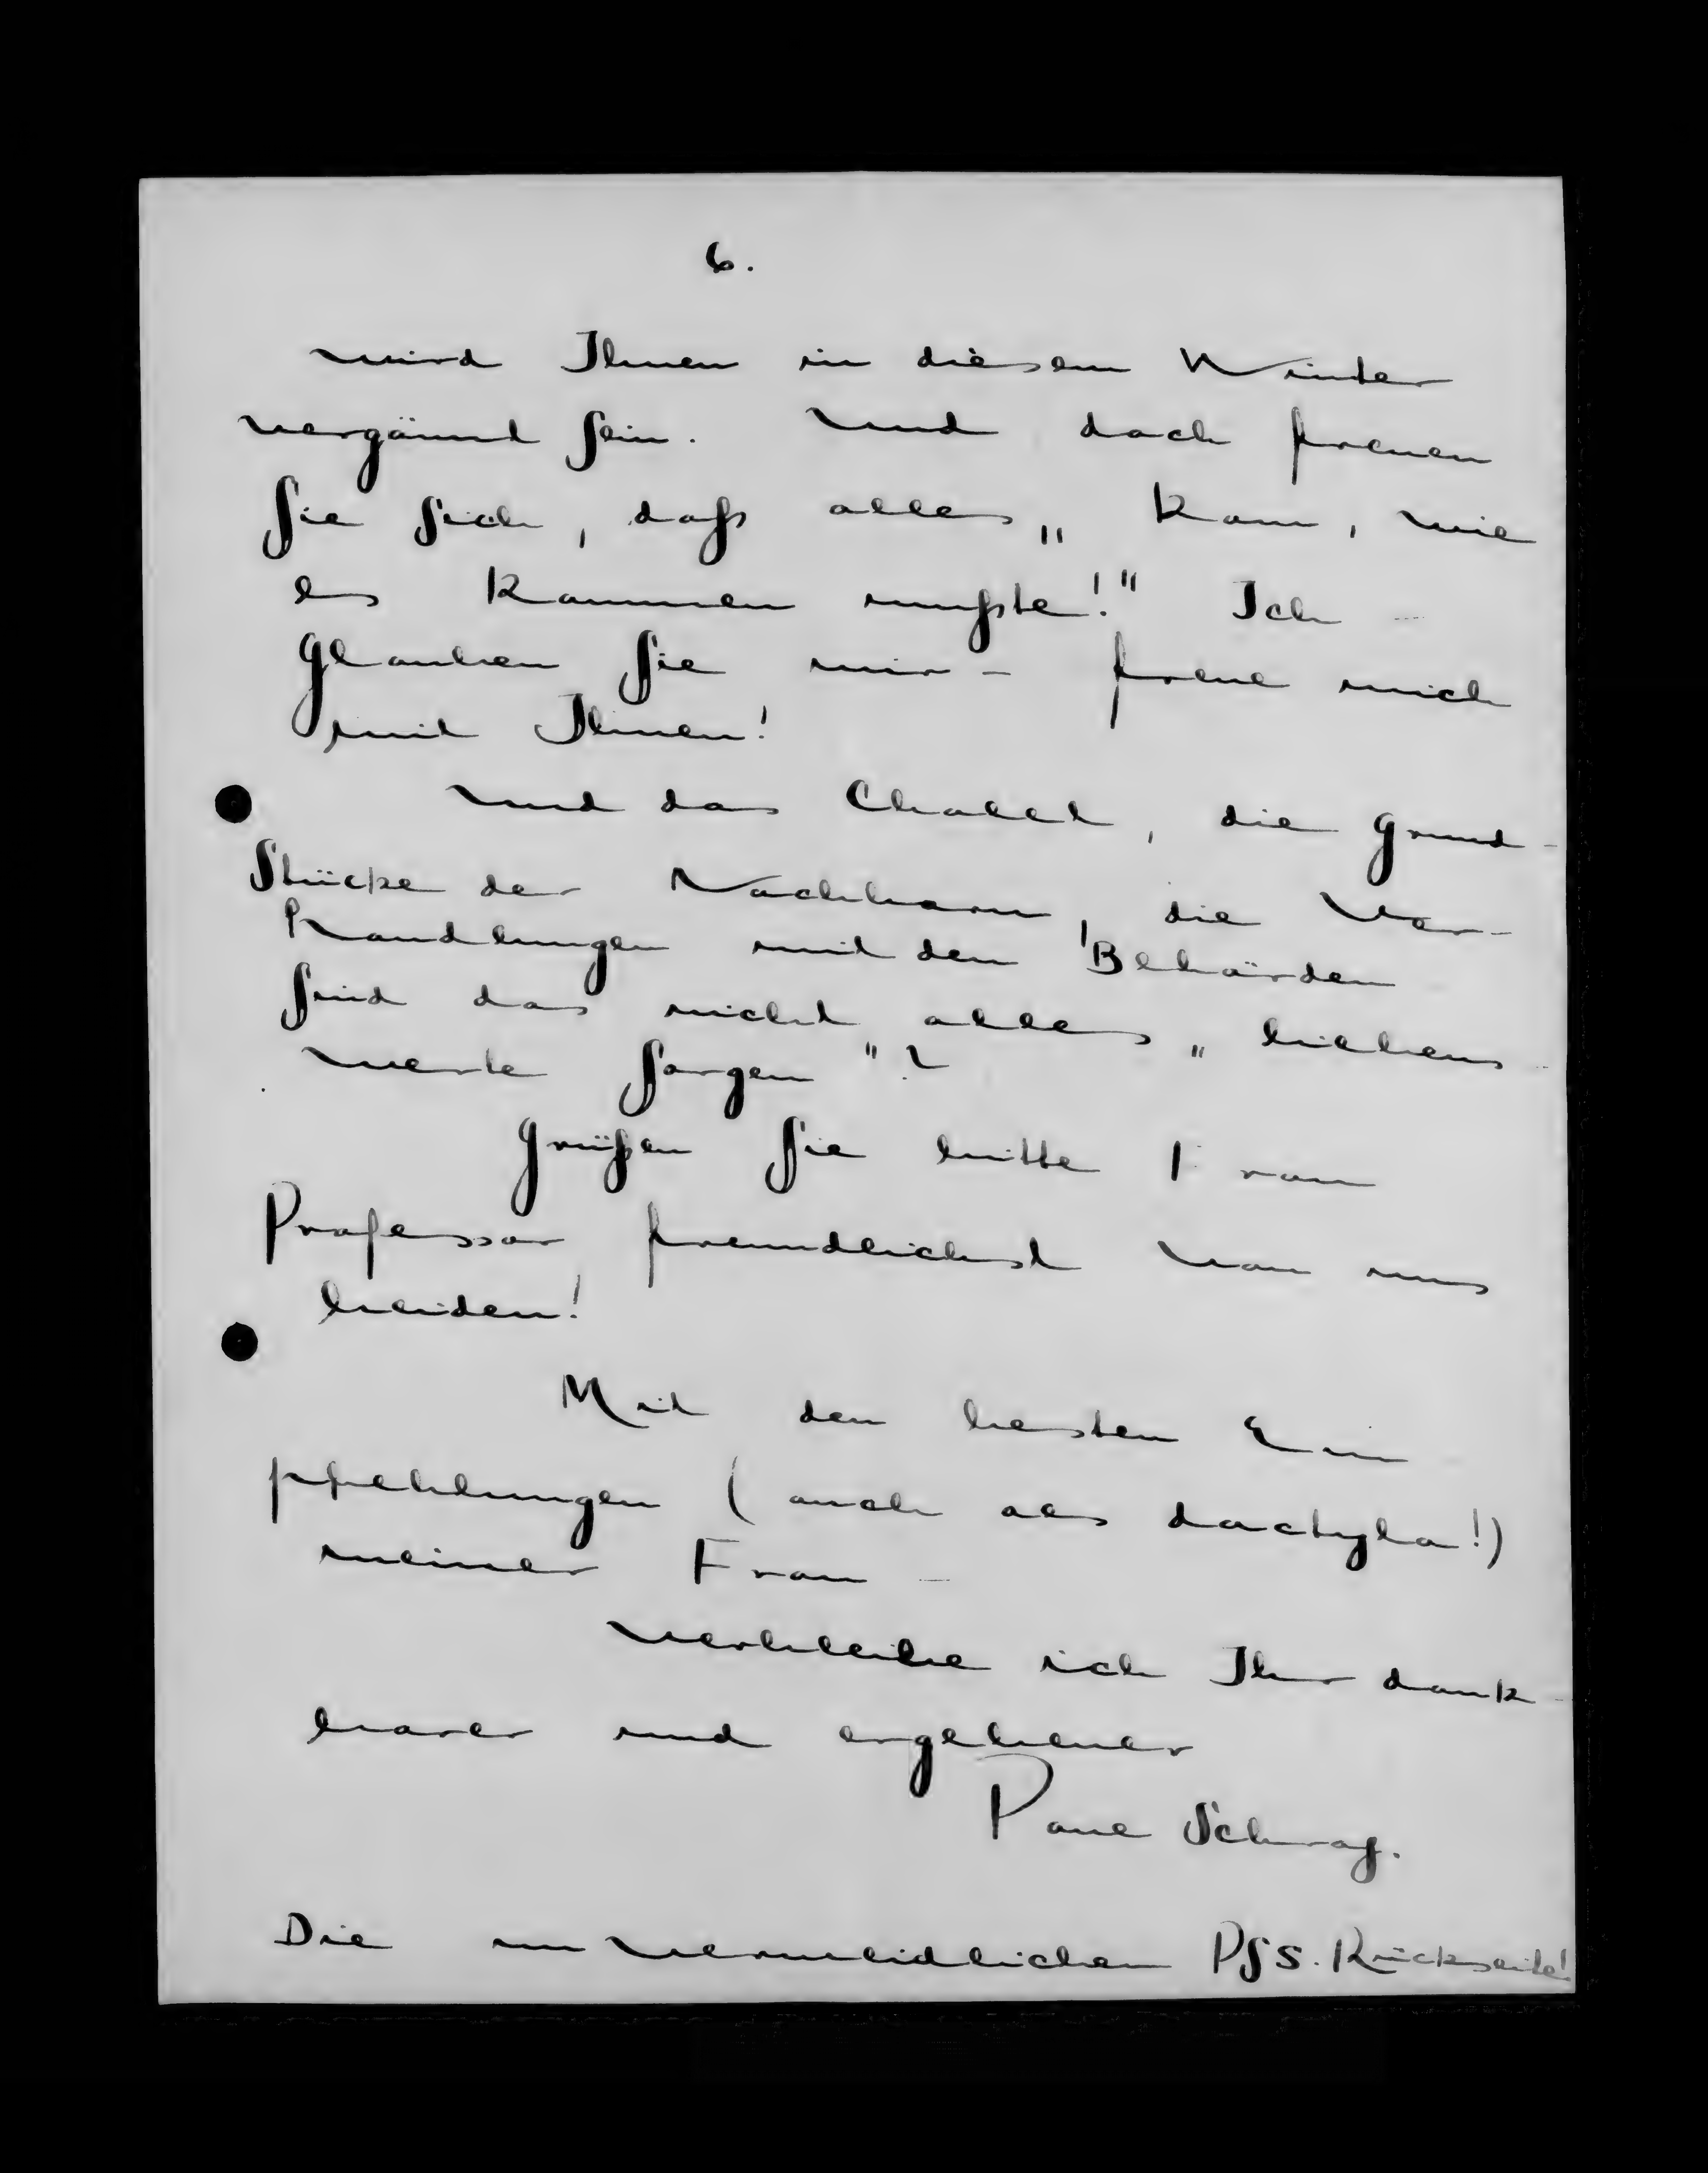 6.
wird Ihnen in diesem Winter
vergönnt sein. Und doch freuen
Sie sich, daß alles „ kam, wie
es kommen mußte!" Ich -
glauben Sie mir - freue mich
mit Ihnen!
Und das Chalet, die Grund-
stücke der Nachbarn, die Ver-
handlungen mit den Behörden
sind das nicht alles „ liebens-
werte Sorgen "?
Grüßen Sie bitte Frau
Professor freundlichst von uns
beiden!
Mit den besten Em
pfehlungen (auch als dactyla!)
meiner Frau -
verbleibe ich Ihr dank-
barer und ergebener
Paul Schrag.
Die unvermeidlichen PSS. Rückseite!